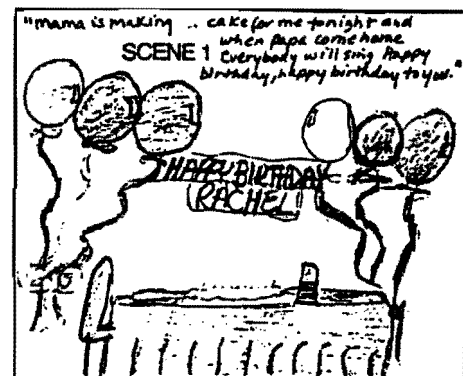 "mama is making .. cake for me tonight and
when Papa come home
SCENE 1 Everybody will sing Happy
birthday, happy birthday to you."
HAPPY BIRTHDAY
RACHEL